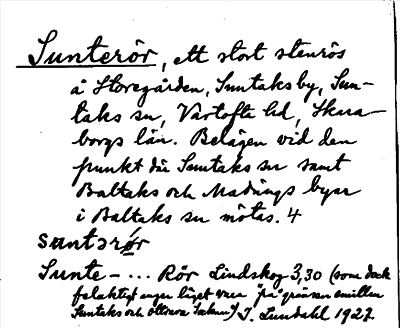 Sunterör, ett stort stenrös
å Storegården, Suntaks by, Sun-
taks sn, Vartofta hd, Skara-
borgs län. Belägen vid den
punkt där Suntaks sn samt
Baltaks och Madängs byar
i Baltaks sn mötas. 4
suntɔrør
Sunte- ... Rör Lindskog 3,30 (som dock
felaktigt anger läget vara "på gränsen emellan
Suntaks och Ottravad Socknar") I. Lundahl 1927.